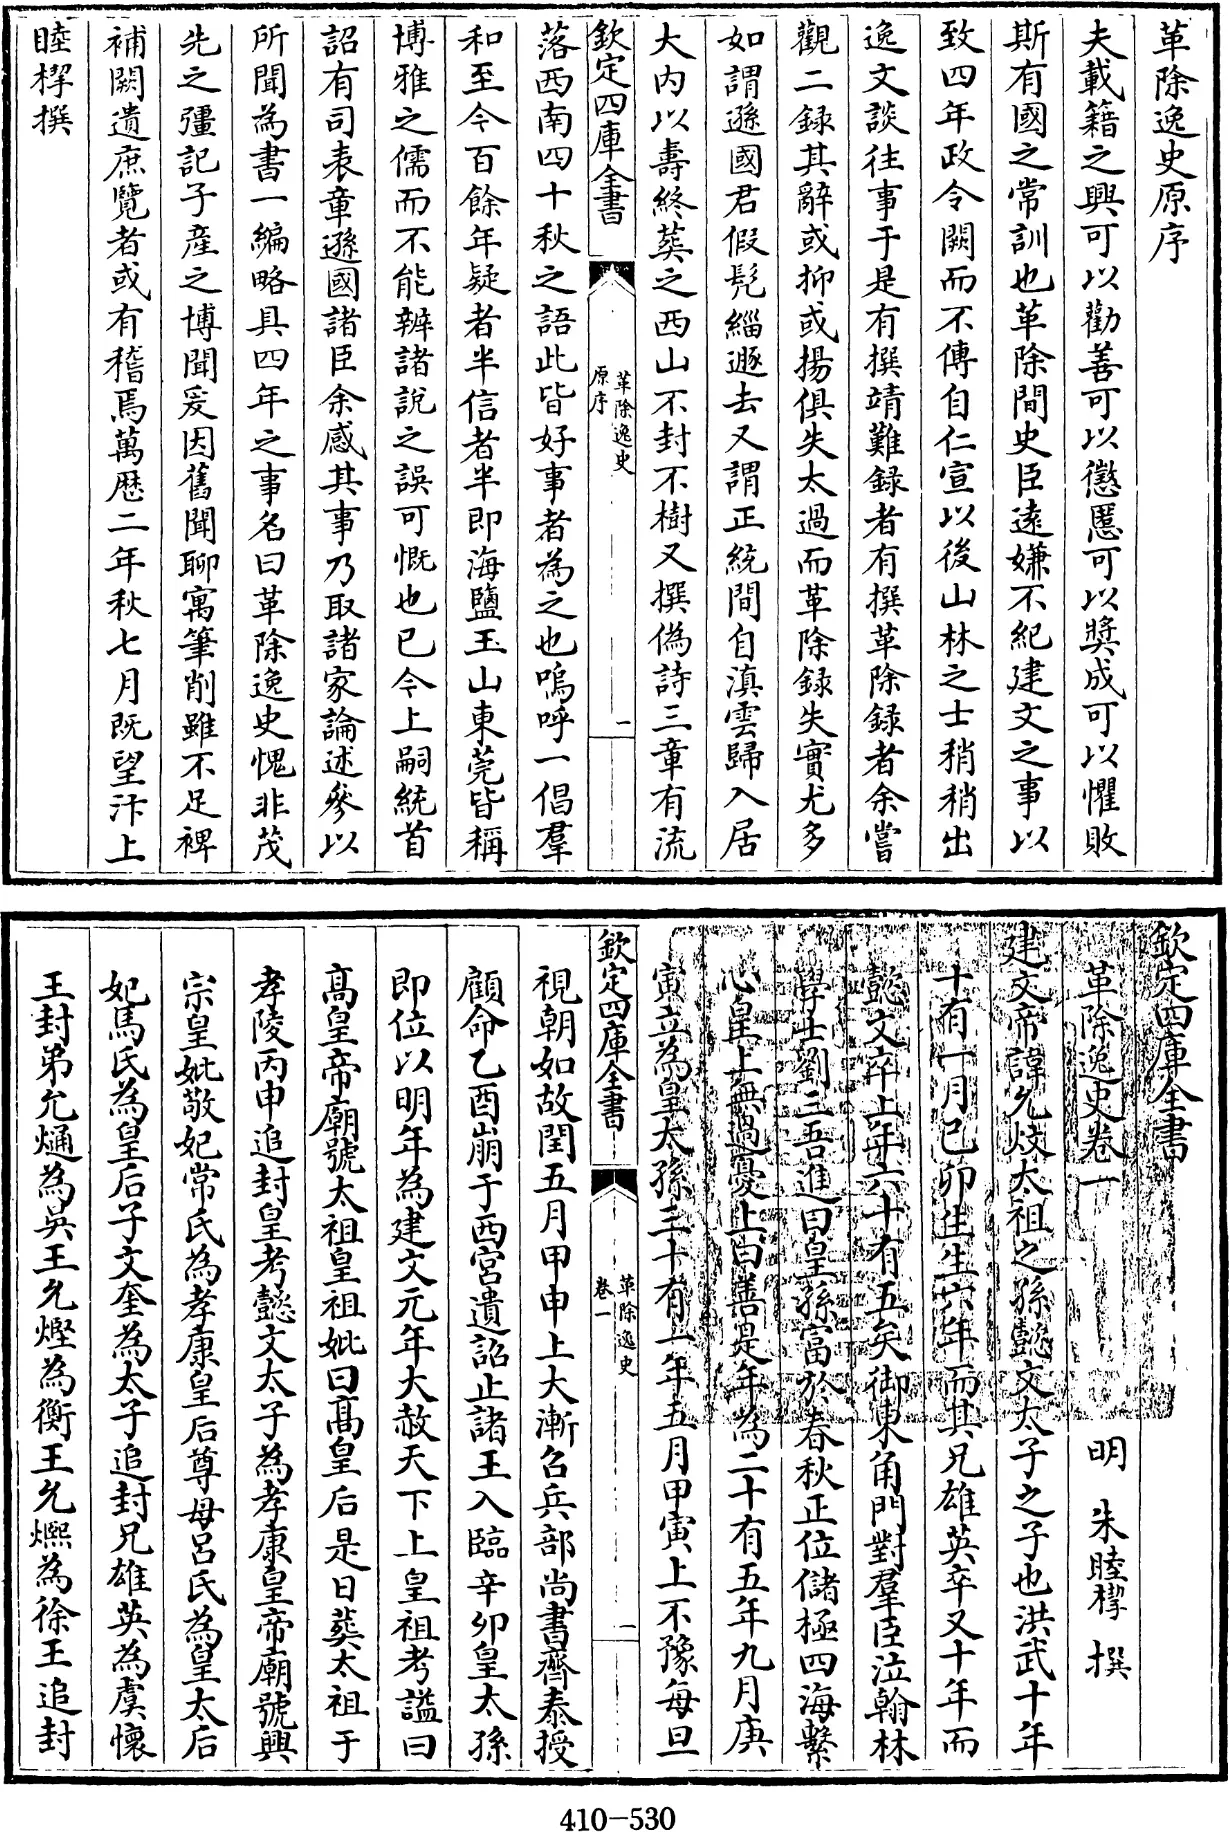 革除逸史原序
夫載籍之興可以勸善可以懲慝可以奬成可以懼敗
斯有國之常訓也革除間史臣逺嫌不紀建文之事以
致四年政令闕而不傳自仁宣以後山林之士稍稍出
逸文談往事于是有撰靖難録者有撰革除録者余嘗
觀二録其辭或抑或揚俱失太過而革除録失實尤多
如謂遜國君假髠緇遯去又謂正統間自滇雲歸入居
大内以壽終葬之西山不封不樹又撰偽詩三章有流
欽定四庫全書
革除逸史
原序
一
落西南四十秋之語此皆好事者為之也嗚呼一倡羣
和至今百餘年疑者半信者半即海鹽玉山東莞皆稱
博雅之儒而不能辨諸説之誤可慨也已今上嗣統首
詔有司表章遜國諸臣余感其事乃取諸家論述參以
所聞為書一編略具四年之事名曰革除逸史愧非茂
先之彊記子産之博聞爰因舊聞聊寓筆削雖不足裨
補闕遺庶覽者或有稽焉萬厯二年秋七月既望汴上
睦㮮撰
欽定四庫全書
革除逸史卷一
明 朱睦㮮 撰
建文帝諱允炆太祖之孫懿文太子之子也洪武十年
十有一月己卯生生六年而其兄雄英卒又十年而
懿文卒上年六十有五矣御東角門對羣臣泣翰林
學士劉三吾進曰皇孫富於春秋正位儲極四海繫
心皇上無過憂上曰善是年為二十有五年九月庚
寅立為皇太孫三十有一年五月甲寅上不豫每旦
欽定四庫全書
革除逸史
卷一
一
視朝如故閏五月甲申上大漸召兵部尚書齊泰授
顧命乙酉崩于西宮遺詔止諸王入臨辛卯皇太孫
即位以明年為建文元年大赦天下上皇祖考謚曰
高皇帝廟號太祖皇祖妣曰高皇后是日葬太祖于
孝陵丙申追封皇考懿文太子為孝康皇帝廟號興
宗皇妣敬妃常氏為孝康皇后尊母呂氏為皇太后
妃馬氏為皇后子文奎為太子追封兄雄英為虞懷
王封弟允熥為吳王允熞為衡王允㷩為徐王追封
410-530